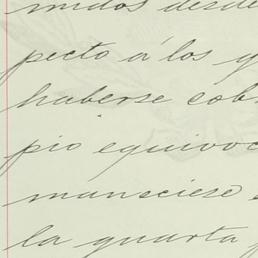 nidos desde
pecto á los y
haberse cob
pio equivoc
mansciese e
la quarta p